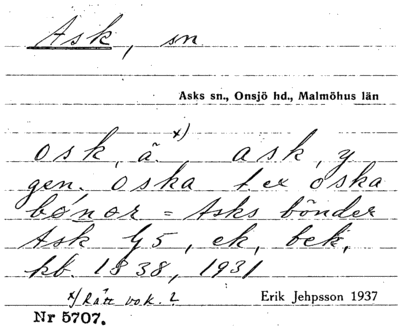 Ask, sn
Asks sn., Onsjö hd., Malmöhus län
x)
osk, ä. ask, y
gen. oska t ex oska
bønor = Asks bönder
Ask G5, ek, bek,
kb. 1838, 1931
x) Rätt vok.?
Erik Jehpsson 1937
Nr 5707.